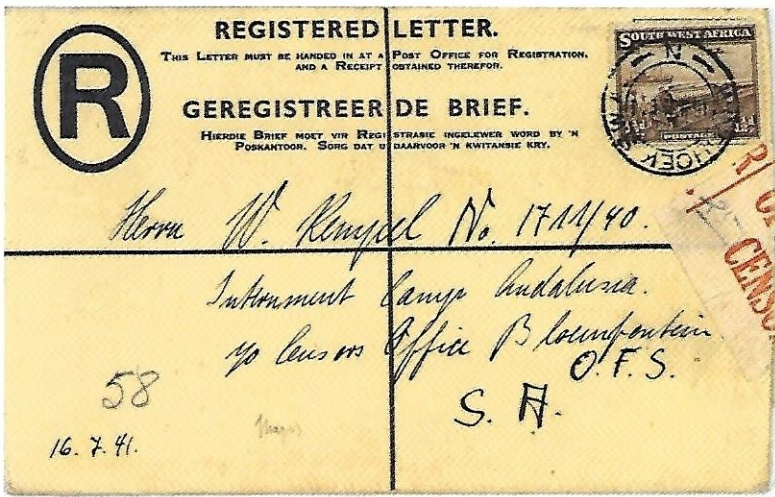 REGISTERED LETTER.
THIS LETTER MUST BE HANDED IN AT A POST OFFICE FOR REGISTRATION,
AND A RECEIPT OBTAINED THEREFOR.
R
GEREGISTREERDE BRIEF.
HIERDIE BRIEF MOET VIR REGISTRASIE INGELEWER WORD BY 'N
POSKANTOOR. SORG DAT U DAARVOOR 'N KWITANSIE KRY.
SOUTH WEST AFRICA
POSTAGE
CENSO
Herrn W. Kempel No. 1711/40.
Internment Camp Andalusia.
c/o Censors Office Bloemfontein
O.F.S.
S. A.
58
16.7.41.